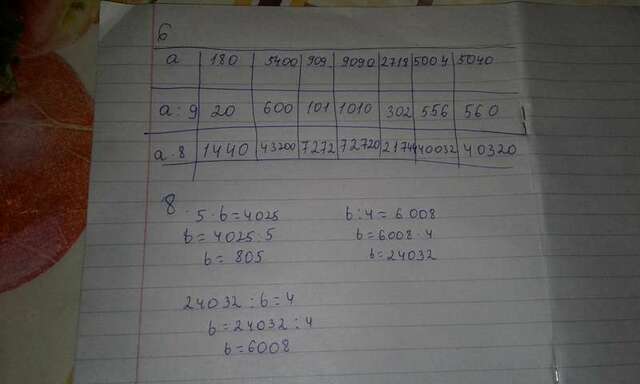 6
a 180 5400 909 9090 2718 5004 5040
a : 9 20 600 101 1010 302 556 560
a · 8 1440 43200 7272 72720 21744 40032 40320
8.
5 · b = 4025
b = 4025 : 5
b = 805
b : 4 = 6008
b = 6008 · 4
b = 24032
24032 : b = 4
b = 24032 : 4
b = 6008